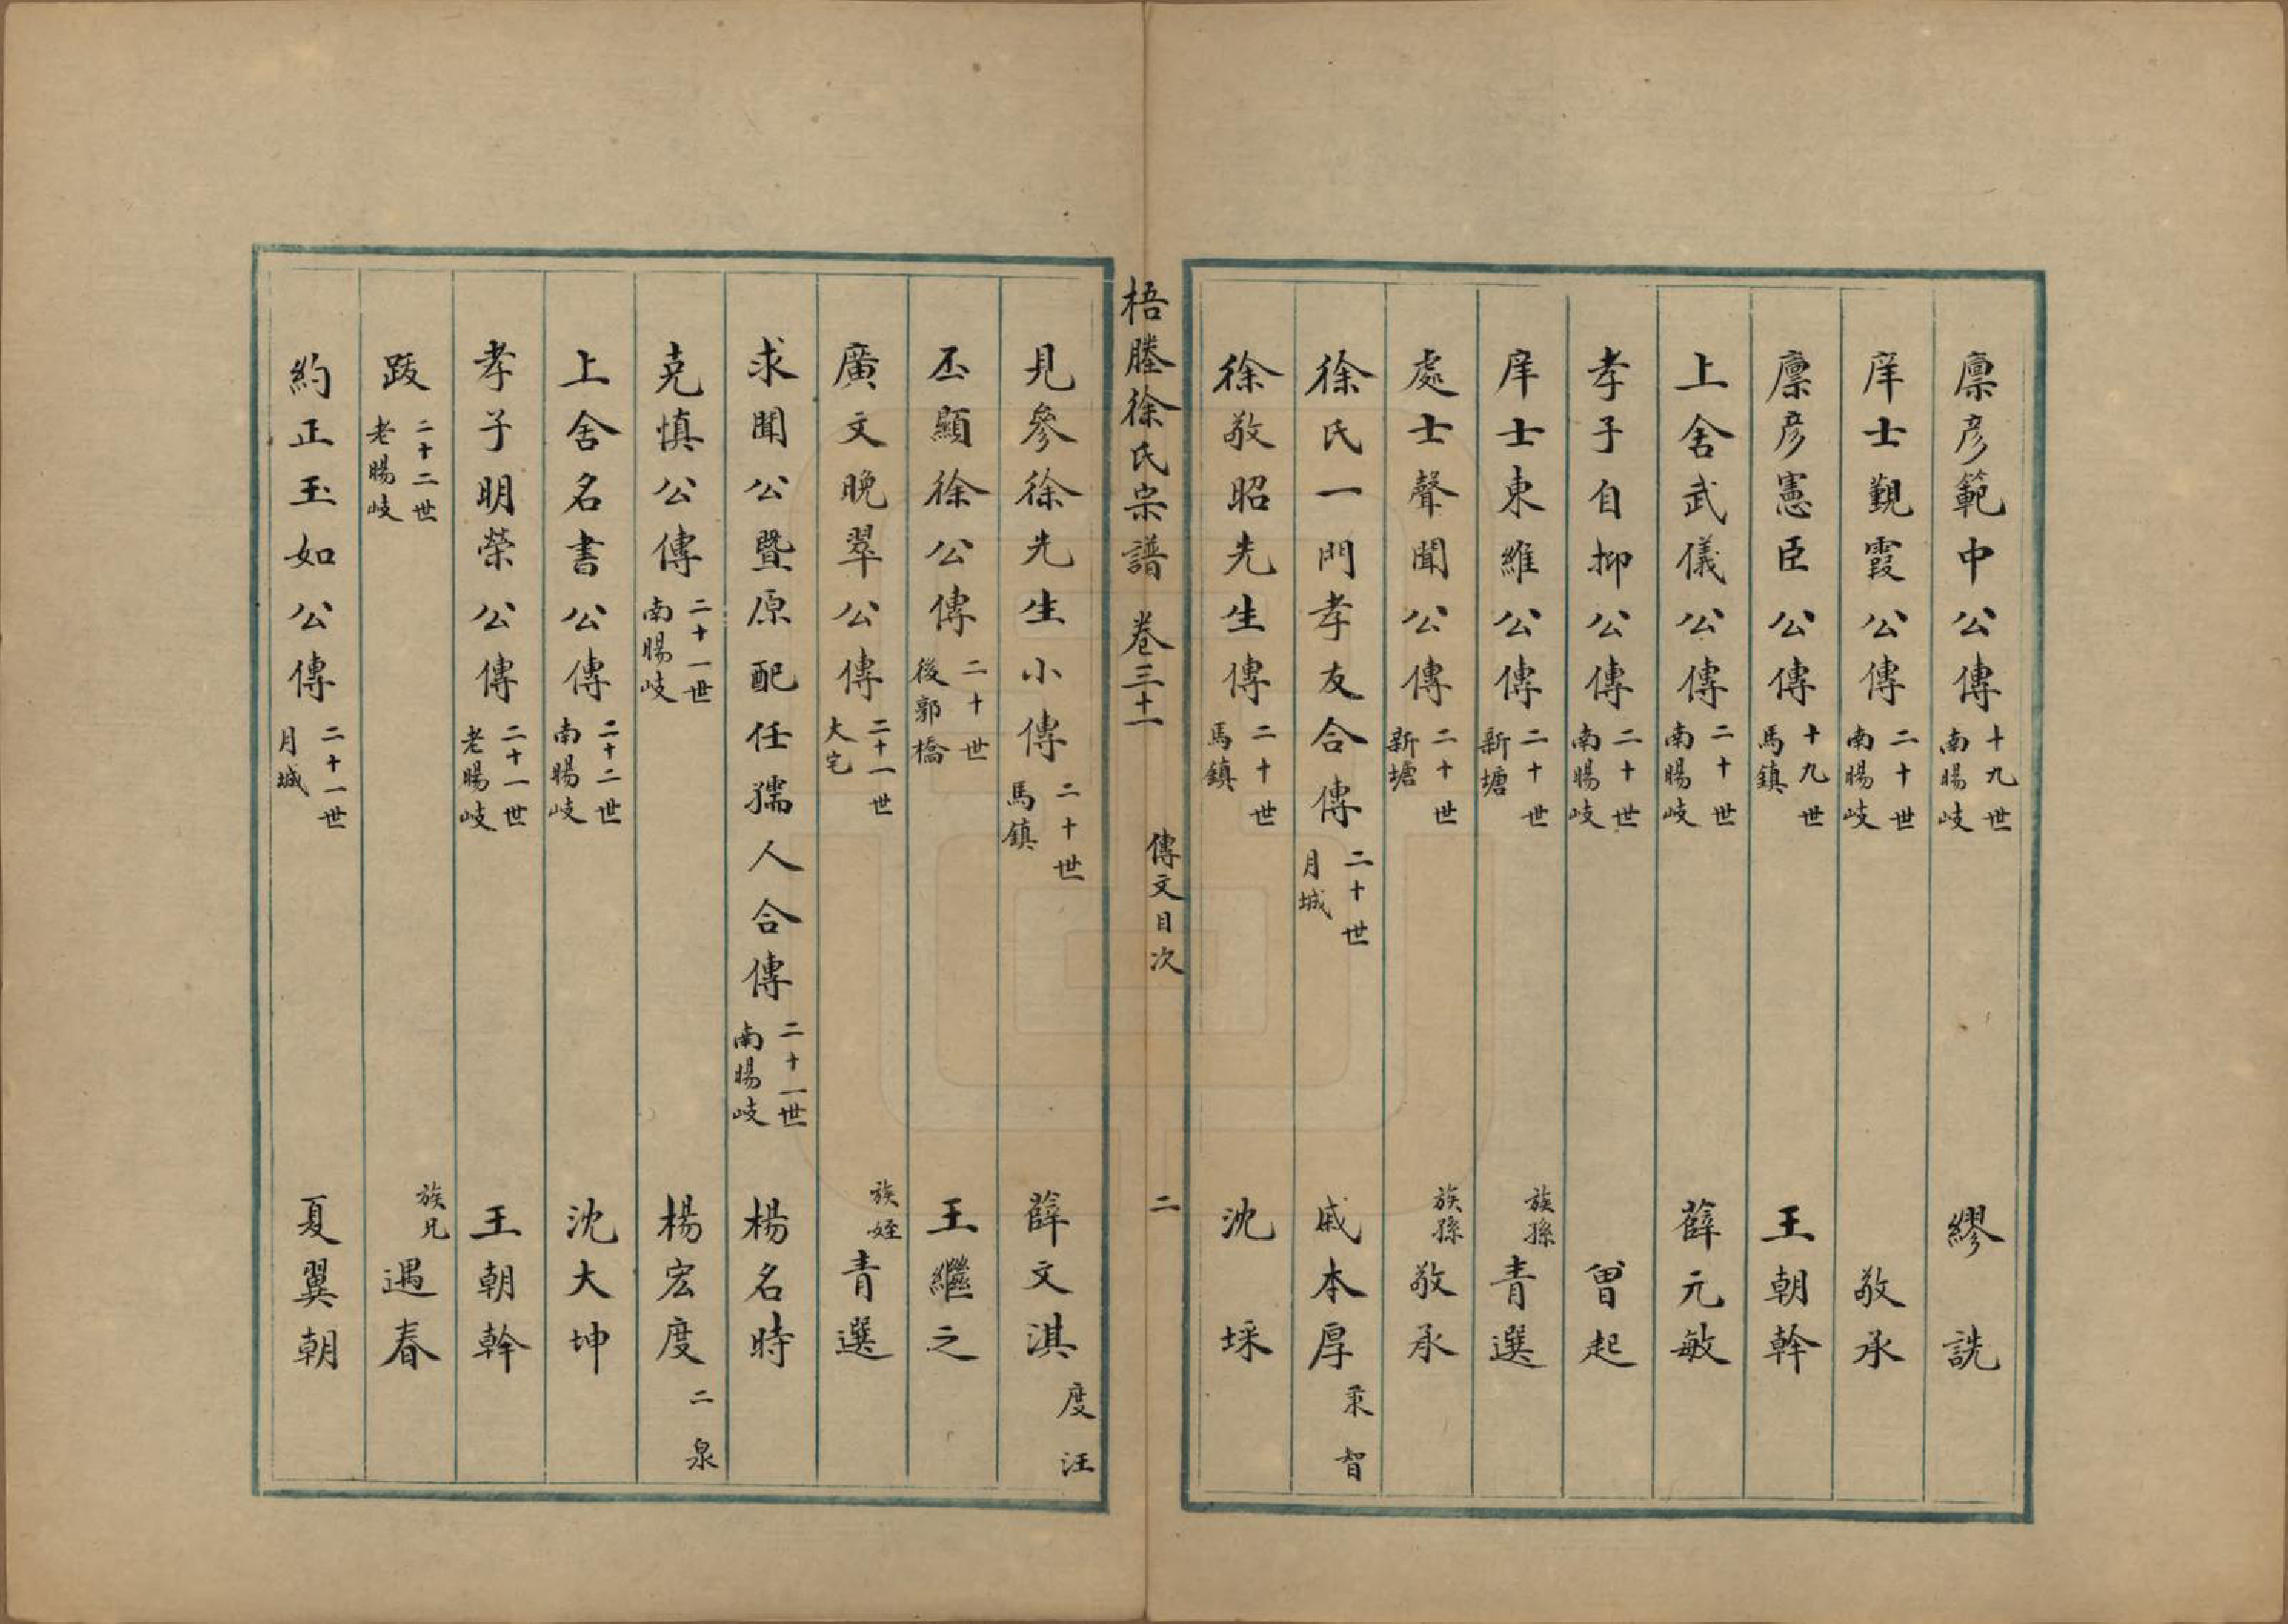 廪彦範中公傳 十九世 南暘岐 繆詵
庠士觀霞公傳 二十世 南暘岐 敬承
廪彦憲臣公傳 十九世 馬鎮 王朝幹
上舍武儀公傳 二十世 南暘岐 薛元敏
孝子自抑公傳 二十世 南暘岐 曾起
庠士東維公傳 二十世 新塘 族孫 青選
處士聲聞公傳 二十世 新塘 族孫 敬承
徐氏一門孝友合傳 二十世 月城 戚本厚 秉智
徐敬昭先生傳 二十世 馬鎮 沈埰
梧塍徐氏宗譜 卷三十一 傳文目次 二
見參徐先生小傳 二十世 馬鎮 薛文淇 度汪
丕顯徐公傳 二十世 後郭橋 王繼之
廣文晚翠公傳 二十一世 大宅 族姪 青選
求聞公暨原配任孺人合傳 二十一世 南暘岐 楊名時
克慎公傳 二十一世 南暘岐 楊宏度 二泉
上舍名書公傳 二十二世 南暘岐 沈大坤
孝子明榮公傳 二十一世 老暘岐 王朝幹
跋 二十二世 老暘岐 族兄 遇春
約正玉如公傳 二十一世 月城 夏翼朝